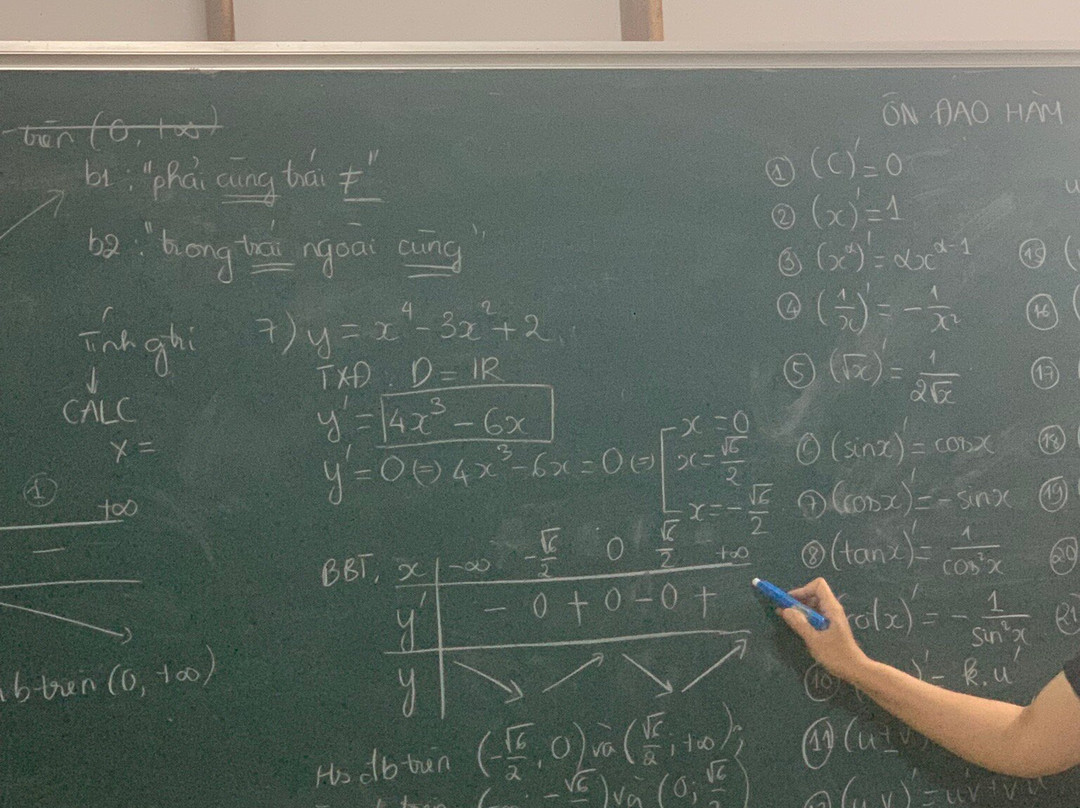 trên (0, +∞)
b1 : "phải cùng trái ≠"
b2 : "trong trái ngoài cùng"
Tính ghi
↓
CALC
x =
①
+∞
−
b trên (0, +∞)
7) y = x⁴ - 3x² + 2
TXĐ : D = ℝ
y' = 4x³ - 6x
y' = 0 (=) 4x³ - 6x = 0 (=) [ x = 0
x = √6/2
x = -√6/2
BBT, x | -∞ -√6/2 0 √6/2 +∞
y' | - 0 + 0 - 0 +
y | ↘ ↗ ↘ ↗
Hs đb trên (-√6/2; 0) và (√6/2; +∞);
trên (; -√6/2) và (0; √6/2)
ÔN ĐẠO HÀM
① (C)' = 0
② (x)' = 1
③ (x^α)' = αx^(α-1)
④ (1/x)' = -1/x²
⑤ (√x)' = 1/(2√x)
(sinx)' = cosx
⑦ (cosx)' = -sinx
⑧ (tanx)' = 1/cos²x
cotx)' = -1/sin²x
⑩ k.u'
⑪ (u±v)'
(u.v)' = u'v + v u
⑮ (
⑯ (
⑰
⑱
⑲
⑳